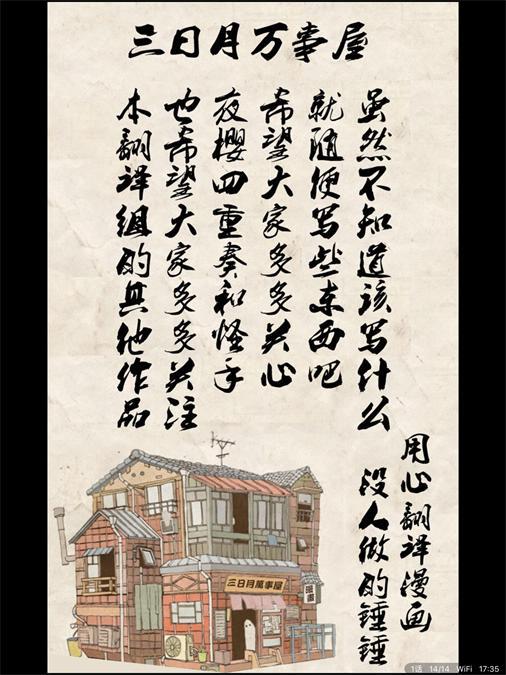 三日月万事屋
用心翻译漫画
没人做的锤锤
虽然不知道该写什么
就随便写些东西吧
希望大家多多关心
夜樱四重奏和怪手
也希望大家多多关注
本翻译组的其他作品
三日月萬事屋
漫畫
1话 14/14 WiFi 17:35